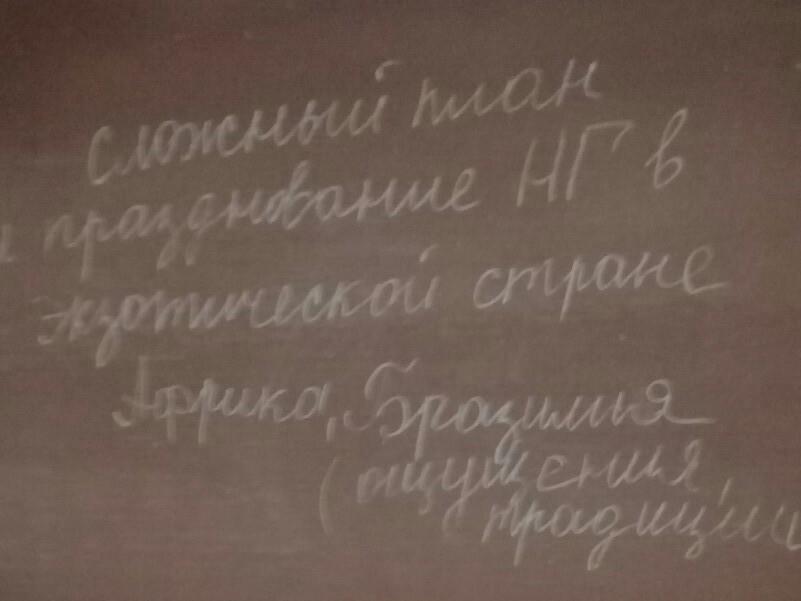 Сложный план
и празднование НГ в
экзотической стране
Африка, Бразилия
(ощущения,
традиции